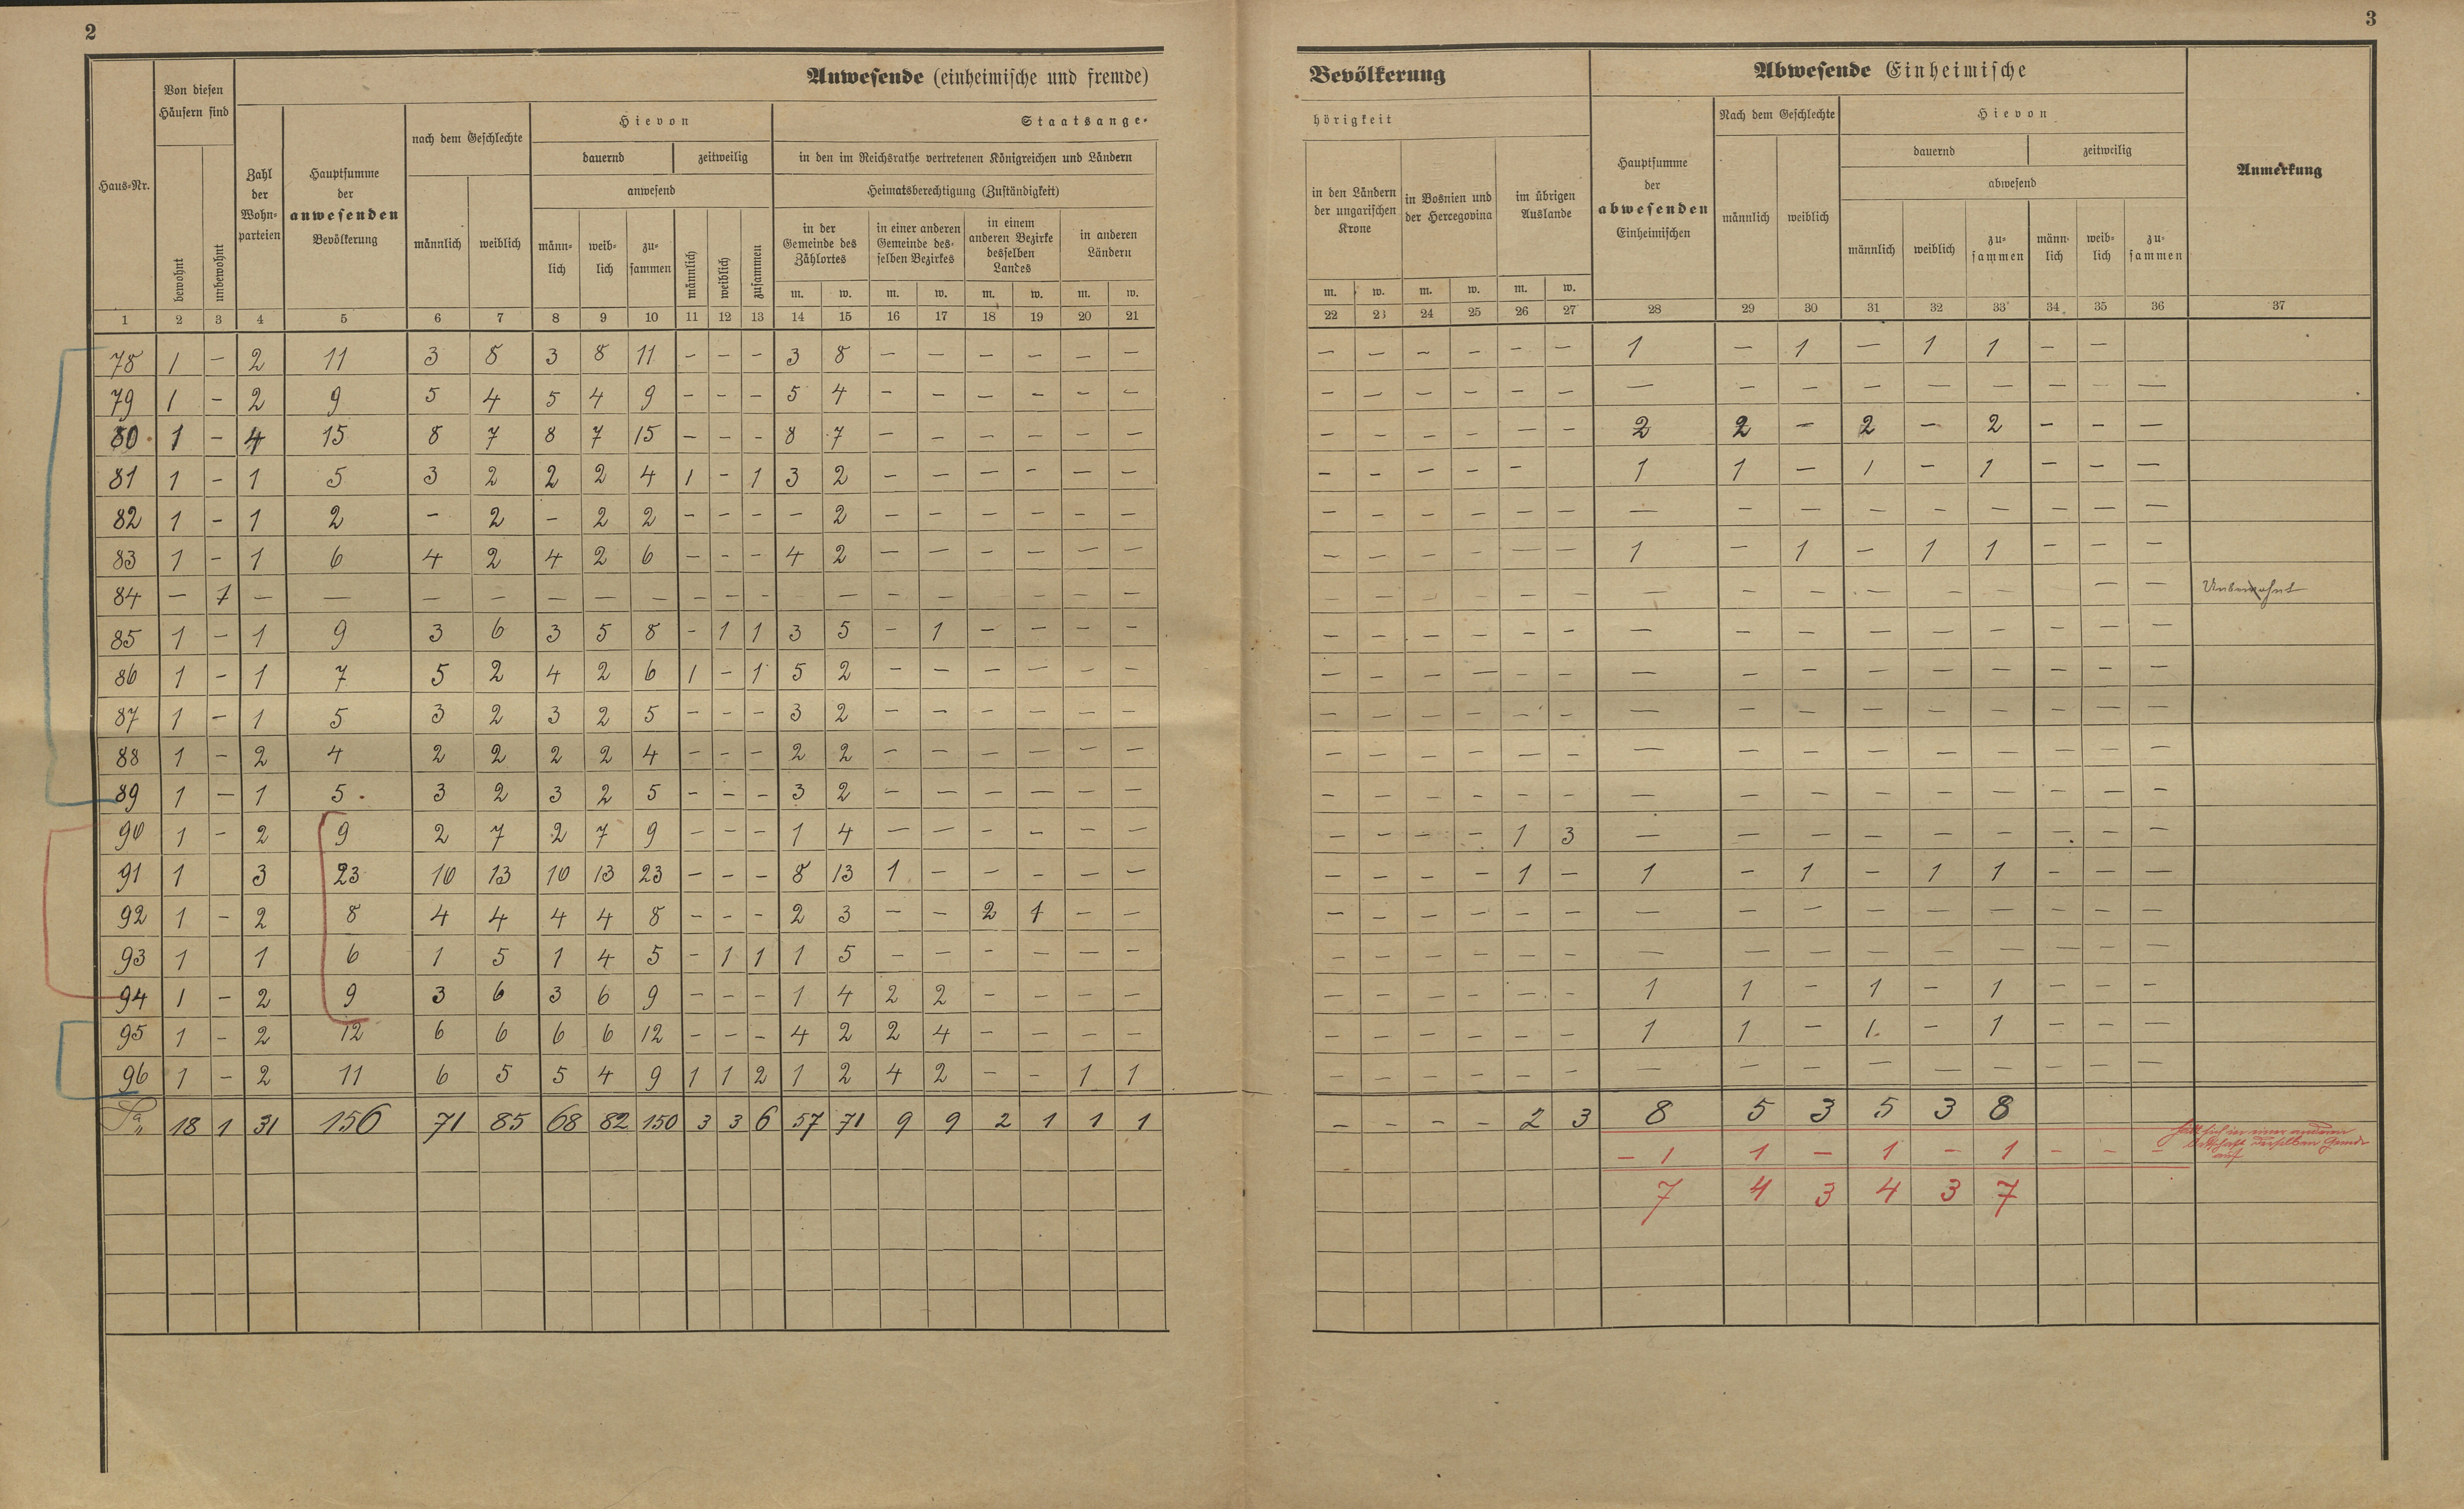 2
3
Anwesende (einheimische und fremde)
Bevölkerung
Abwesende Einheimische
Haus-Nr.
Von diesen Häusern sind
bewohnt
unbewohnt
Zahl der Wohnparteien
Hauptsumme der anwesenden Bevölkerung
nach dem Geschlechte
männlich
weiblich
Hievon
dauernd
zeitweilig
anwesend
männlich
weiblich
zusammen
männlich
weiblich
zusammen
Staatsange-
hörigkeit
in den im Reichsrathe vertretenen Königreichen und Ländern
Heimatsberechtigung (Zuständigkeit)
in der Gemeinde des Zählortes
in einer anderen Gemeinde desselben Bezirkes
in einem anderen Bezirke desselben Landes
in anderen Ländern
in den Ländern der ungarischen Krone
in Bosnien und der Hercegovina
im übrigen Auslande
m. w. m. w. m. w. m. w. m. w. m. w. m. w.
Hauptsumme der abwesenden Einheimischen
Nach dem Geschlechte
männlich
weiblich
Hievon
dauernd
zeitweilig
abwesend
männlich
weiblich
zusammen
männlich
weiblich
zusammen
Anmerkung
1 2 3 4 5 6 7 8 9 10 11 12 13 14 15 16 17 18 19 20 21 22 23 24 25 26 27 28 29 30 31 32 33 34 35 36 37
78 1 – 2 11 3 8 3 8 11 – – – 3 8 – – – – – – – – – – – – 1 – 1 – 1 1 – –
79 1 – 2 9 5 4 5 4 9 – – – 5 4 – – – – – – – – – – – – – – – – – – – – –
80 1 – 4 15 8 7 8 7 15 – – – 8 7 – – – – – – – – – – – – 2 2 – 2 – 2 – – –
81 1 – 1 5 3 2 2 2 4 1 – 1 3 2 – – – – – – – – – – – 1 1 – 1 – 1 – – –
82 1 – 1 2 – 2 – 2 2 – – – – 2 – – – – – – – – – – – – – – – – – – – – –
83 1 – 1 6 4 2 4 2 6 – – – 4 2 – – – – – – – – – – – – 1 – 1 – 1 1 – – –
84 – 1 – – – – – – – – – – – – – – – – – – – – – – – – – – – – – – – Unbewohnt
85 1 – 1 9 3 6 3 5 8 – 1 1 3 5 – 1 – – – – – – – – – – – – – – – – – – –
86 1 – 1 7 5 2 4 2 6 1 – 1 5 2 – – – – – – – – – – – – – – – – – – – – –
87 1 – 1 5 3 2 3 2 5 – – – 3 2 – – – – – – – – – – – – – – – – – – – – –
88 1 – 2 4 2 2 2 2 4 – – – 2 2 – – – – – – – – – – – – – – – – – – – – –
89 1 – 1 5 3 2 3 2 5 – – – 3 2 – – – – – – – – – – – – – – – – – – – – –
90 1 – 2 9 2 7 2 7 9 – – – 1 4 – – – – – – – – – – 1 3 – – – – – – – – –
91 1 3 23 10 13 10 13 23 – – – 8 13 1 – – – – – – – – – 1 – 1 – 1 – 1 1 – – –
92 1 – 2 8 4 4 4 4 8 – – – 2 3 – – 2 1 – – – – – – – – – – – – – – – – –
93 1 1 6 1 5 1 4 5 – 1 1 1 5 – – – – – – – – – – – – – – – – – – – – –
94 1 – 2 9 3 6 3 6 9 – – – 1 4 2 2 – – – – – – – – – – 1 1 – 1 – 1 – – –
95 1 – 2 12 6 6 6 6 12 – – – 4 2 2 4 – – – – – – – – – – 1 1 – 1 – 1 – – –
96 1 – 2 11 6 5 5 4 9 1 1 2 1 2 4 2 – – 1 1 – – – – – – – – – – – – – – –
Sa 18 1 31 156 71 85 68 82 150 3 3 6 57 71 9 9 2 1 1 1 – – – – 2 3 8 5 3 5 3 8
– 1 1 – 1 – 1 – – – hält sich in einer anderen
Ortschaft derselben Gemde
auf
7 4 3 4 3 7